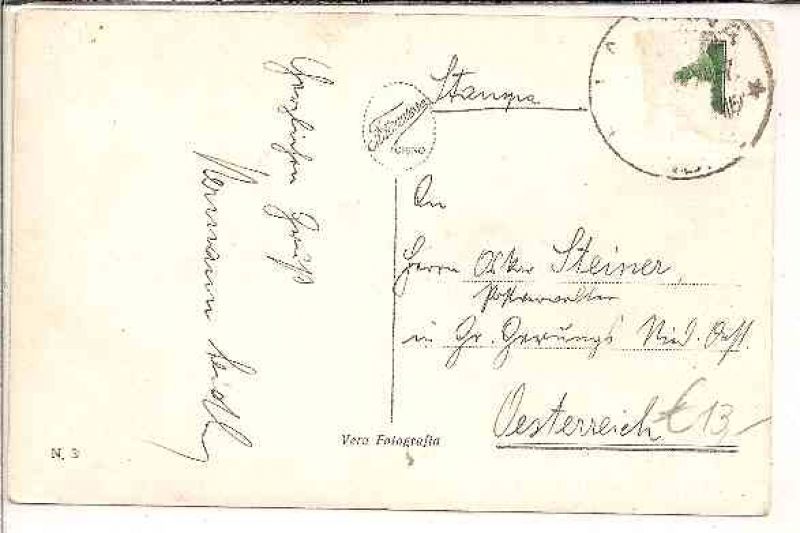 Herzlichen Gruß
Hermann
Stampa
An
Herrn Oskar Steiner,
Postverwalter
in Gr. Gerungs Nied. Öst.
Oesterreich
€ 13,-
Vera Fotografia
N. 3